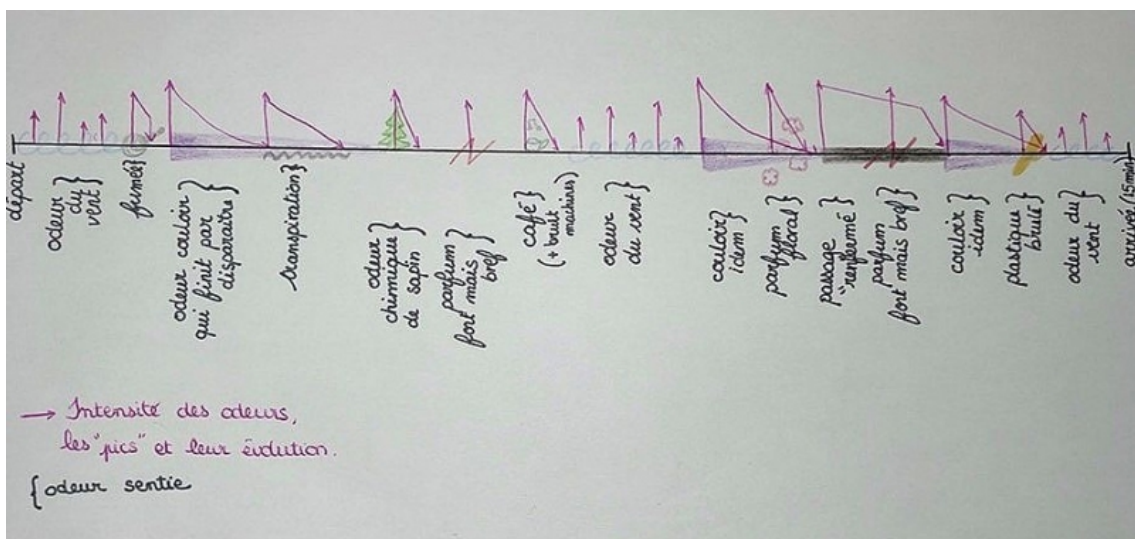 départ
odeur
du
vent }
fumée}
odeur couloir }
qui finit par
disparaître
transpiration}
odeur
chimique }
de sapin
parfum
fort mais }
bref
café }
(+ bruit
machines)
odeur
du vent }
couloir
idem }
parfum
floral }
passage
"renfermé" }
parfum
fort mais bref }
couloir
idem }
plastique
brulé }
odeur du
vent }
arrivée (15min)
→ Intensité des odeurs,
les "pics" et leur évolution.
{odeur sentie